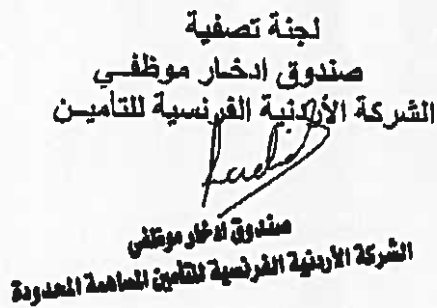 لجنة تصفية
صندوق ادخار موظفي
الشركة الأردنية الفرنسية للتأمين
صندوق ادخار موظفي
الشركة الأردنية الفرنسية للتأمين المساهمة المحدودة